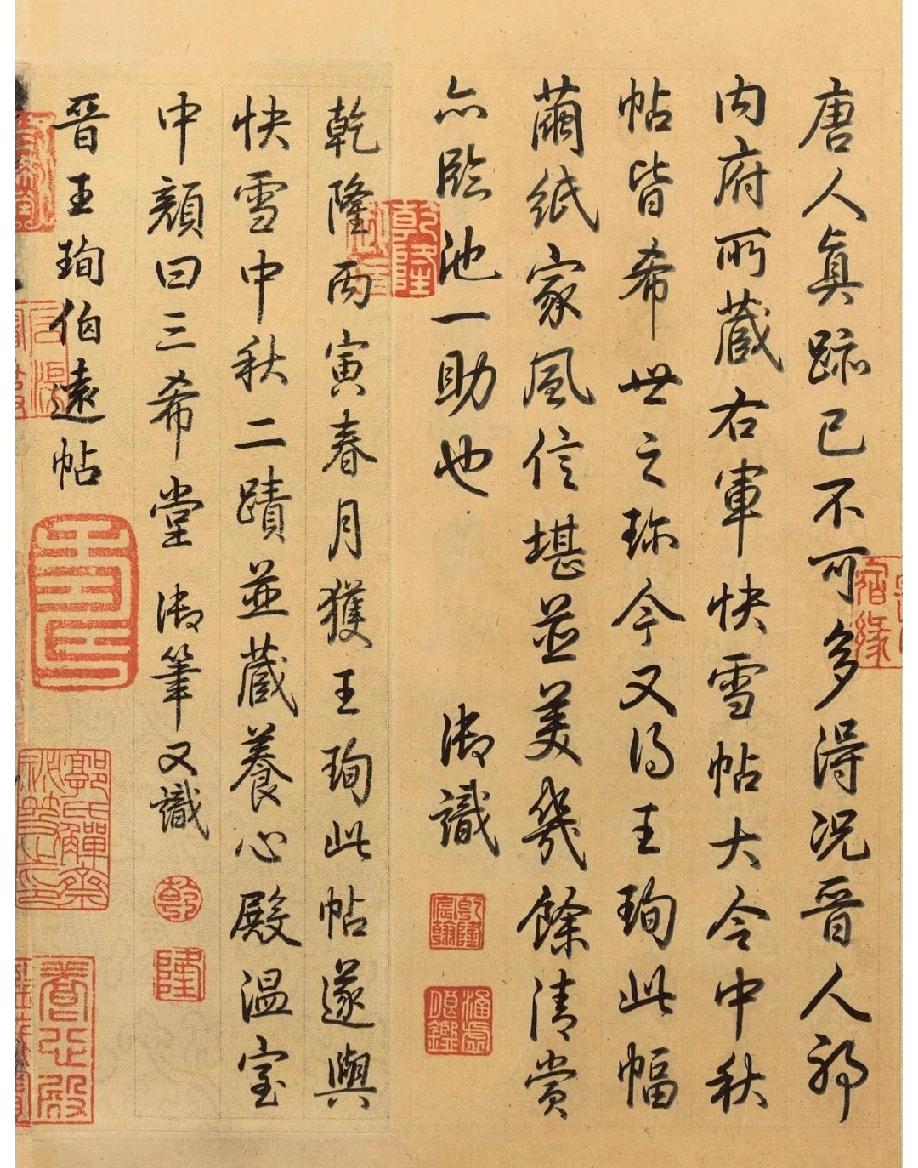 唐人真跡已不可多得况晉人耶
内府所藏右軍快雪帖大令中秋
帖皆希世之珎今又得王珣此幅
繭紙家風信堪並美幾餘清賞
亦臨池一助也 御識
乾隆宸翰
乾隆丙寅春月獲王珣此帖遂與
快雪中秋二蹟並藏養心殿温室
中顔曰三希堂 御筆又識
乾
隆
晉王珣伯遠帖
郭氏觶齋秘笈之印